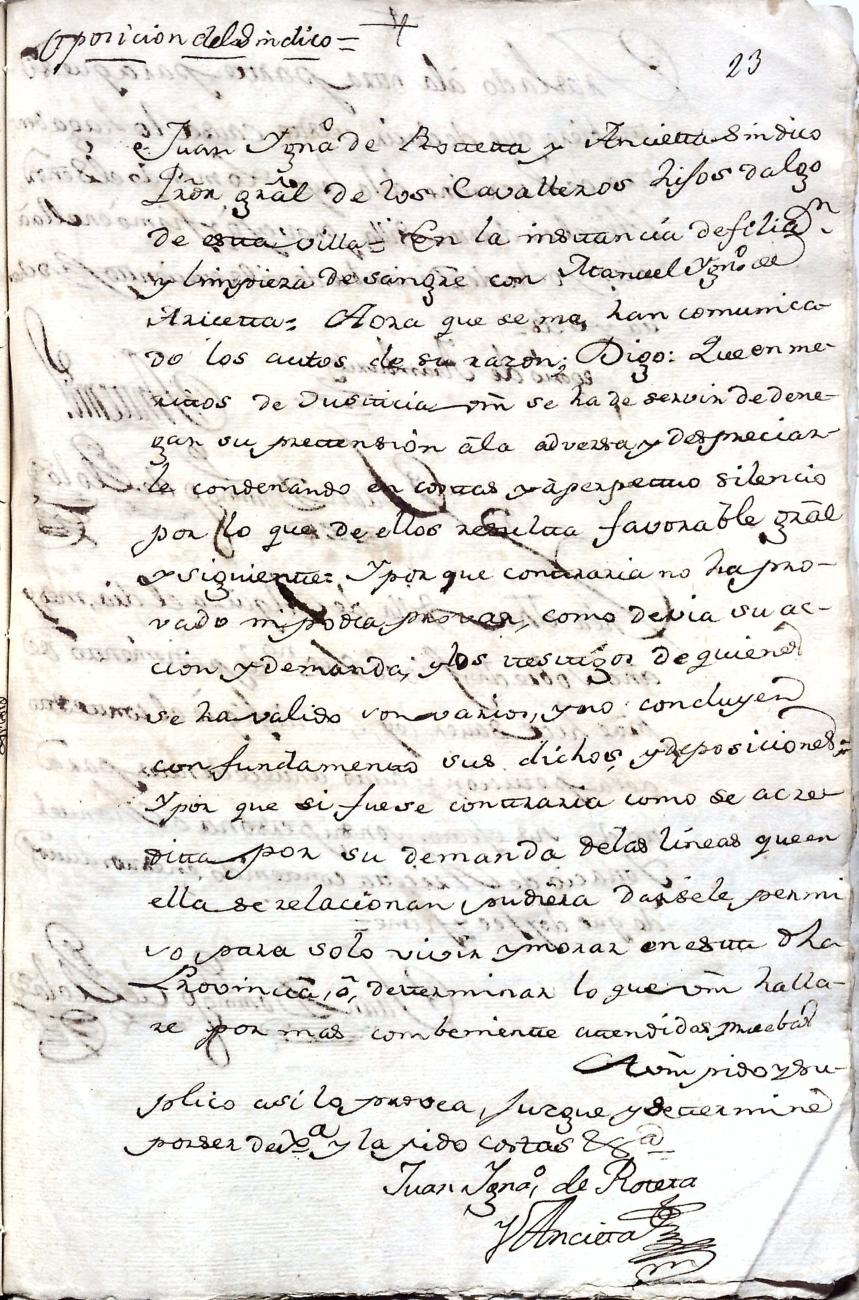 Oposicion del Sindico =
23
Juan Ygnᵒ de Rottetta y Ancietta Sindico
Prōr grāl de los Cavalleros hijos dalgo
de estta villa = En la insttancia de filiaᵒⁿ
y limpieza de sangre con Manuel Ygnᵒ de
Aricetta = Aora que se me han comunica-
do los autos de su razon; Digo: Que en me-
rittos de Justicia vm̄ se ha de servir de dene-
gar su prettensión â la adversa, y despreciar-
le condenando en costtas y â perpettuo silencio
por lo que de ellos resultta favorable grāl
y siguientte: Y por que conttraria no ha pro-
vado ni podia provar, como devia su ac-
cion y demanda, y los ttesttigos de quienes
se ha valido son varios, y no concluyen
con fundamento sus dichos, y deposiciones =
Y por que si fuese conttraria como se acre-
ditta por su demanda de las líneas que en
ella se relacionan, pudiera darsele permi
so para solo vivir y morar en estta dha
Provincia, ô, determinar lo que vm̄ halla-
re por mas combenientte attendidas pruebas
A vm̄ pido y su-
plico asi lo provea, juzgue y determine
por ser de Jᵃ y la pido costas &ᵃ
Juan Ygnaᵒ de Roteta
y Ancietta